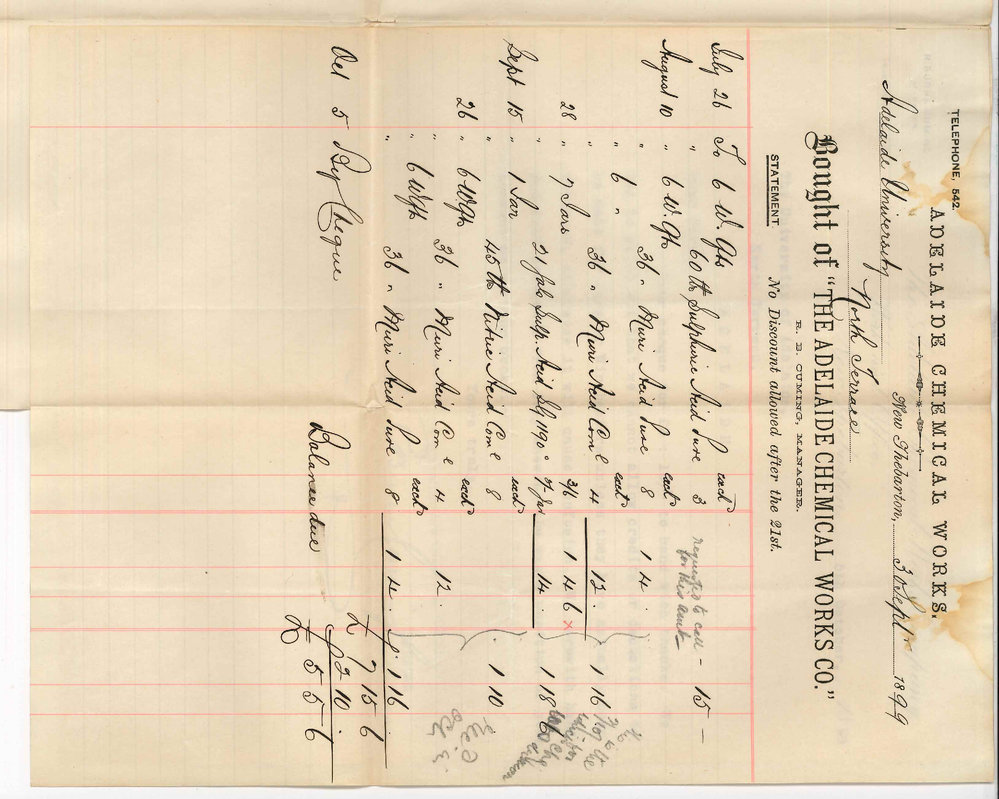 TELEPHONE, 542.
ADELAIDE CHEMICAL WORKS.
New Thebarton, 30 Sept 1899
Adelaide University
North Terrace
Bought of "THE ADELAIDE CHEMICAL WORKS CO."
R. B. CUMING, MANAGER.
STATEMENT. No Discount allowed after the 21st.
July 26 To 6 W. Qts 60 lb Sulphuric Acid Pure each 3 15 —
requested to call -
for this
August 10 " 6 W. Qts 36 " Muri Acid Pure each 8 1 4 .
" 6 " 36 " Muri Acid Coml each 4 12 . 1 16
28 " 7 Jars 21 gals Sulp. Acid Sg 1190° 3/6 1 4 6 x
of Jar 14 . 1 18 6
Sept 15 " 1 Jar 45 lb Nitric Acid Coml each 8 1 10
26 " 6 W Qts 36 " Muri Acid Coml each 4 12 .
" 6 W Qts 36 " Muri Acid Pure each 8 1 4 . 1 16
£ 7 15 6
Oct 5 By Cheque 2 10 .
Balance due £ 5 5 6